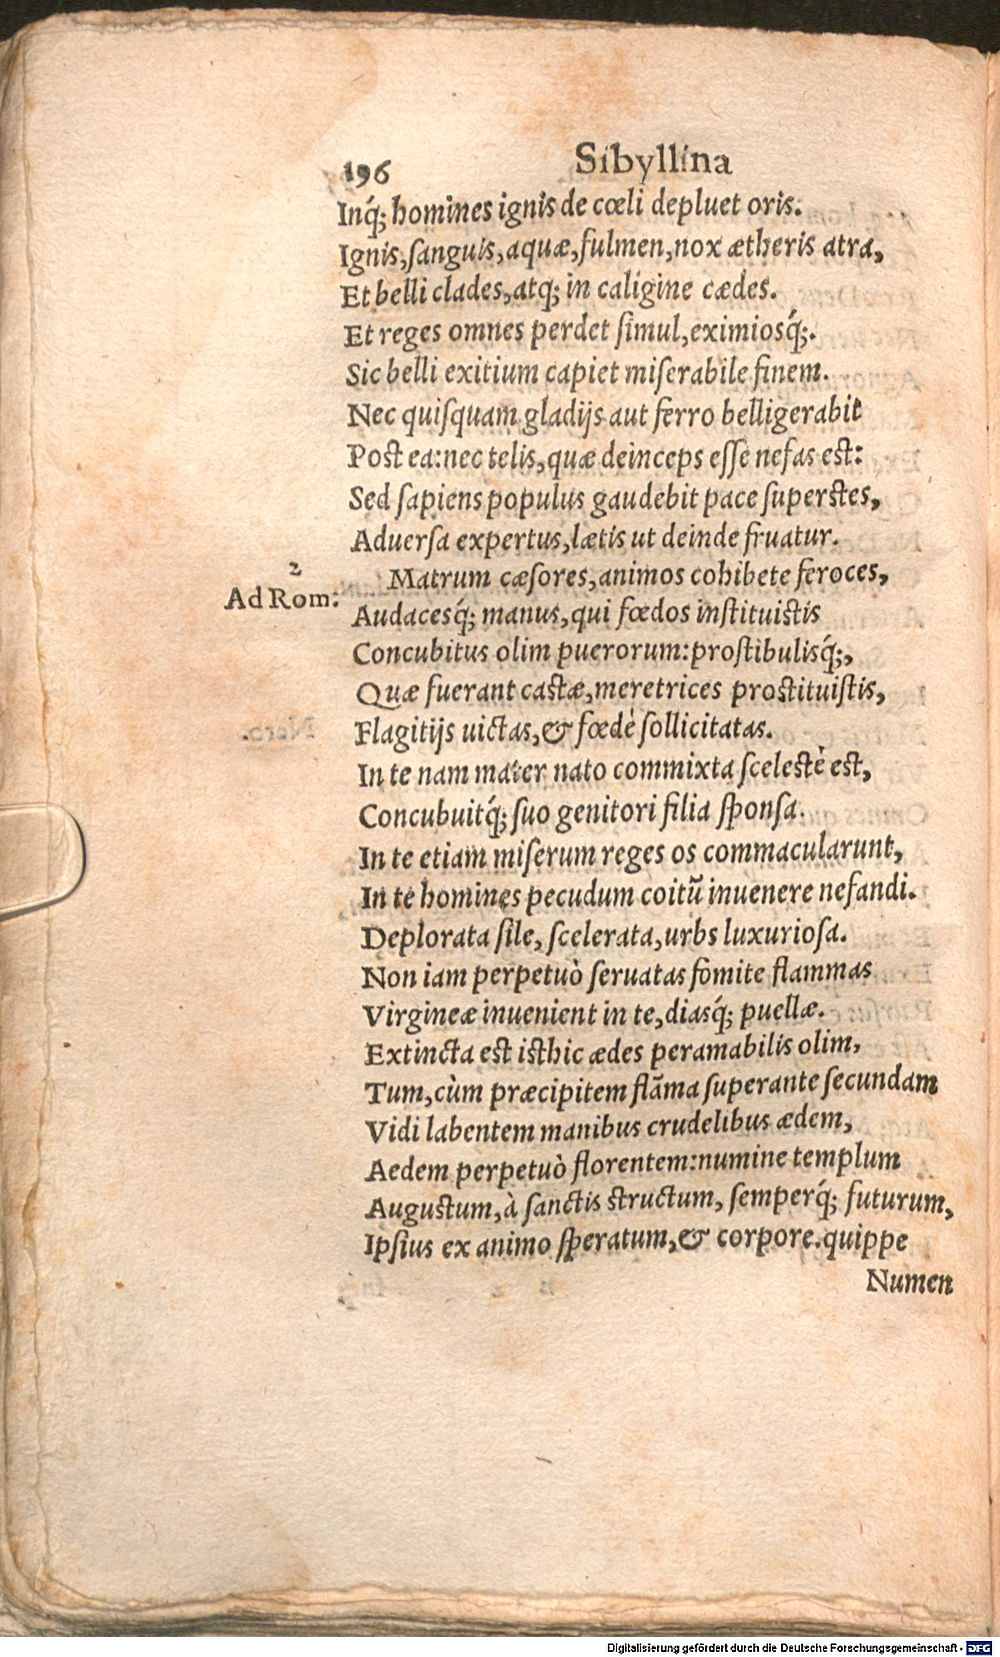 196 Sibyllina
Inq́; homines ignis de cœli depluet oris.
Ignis,sanguis,aquæ,fulmen,nox ætheris atra,
Et belli clades,atq; in caligine cædes.
Et reges omnes perdet simul,eximiosq́;.
Sic belli exitium capiet miserabile finem.
Nec quisquam gladijs aut ferro belligerabit
Post ea:nec telis,quæ deinceps esse nefas est:
Sed sapiens populus gaudebit pace superstes,
Aduersa expertus,lætis ut deinde fruatur.
2
Matrum cæsores,animos cohibete feroces,
Ad Rom:
Audacesq́; manus,qui fœdos instituistis
Concubitus olim puerorum:prostibulisq́;,
Quæ fuerant castæ,meretrices prostituistis,
Flagitijs uictas,& fœdè sollicitatas.
In te nam mater nato commixta scelestè est,
Concubuitq́; suo genitori filia sponsa.
In te etiam miserum reges os commacularunt,
In te homines pecudum coitũ inuenere nefandi.
Deplorata sile, scelerata,urbs luxuriosa.
Non iam perpetuò seruatas fomite flammas
Virgineæ inuenient in te,diasq́; puellæ.
Extincta est isthic ædes peramabilis olim,
Tum,cùm præcipitem flãma superante secundam
Vidi labentem manibus crudelibus ædem,
Aedem perpetuò florentem:numine templum
Augustum,à sanctis structum, semperq́; futurum,
Ipsius ex animo speratum,& corpore.quippe
Numen
Digitalisierung gefördert durch die Deutsche Forschungsgemeinschaft - DFG